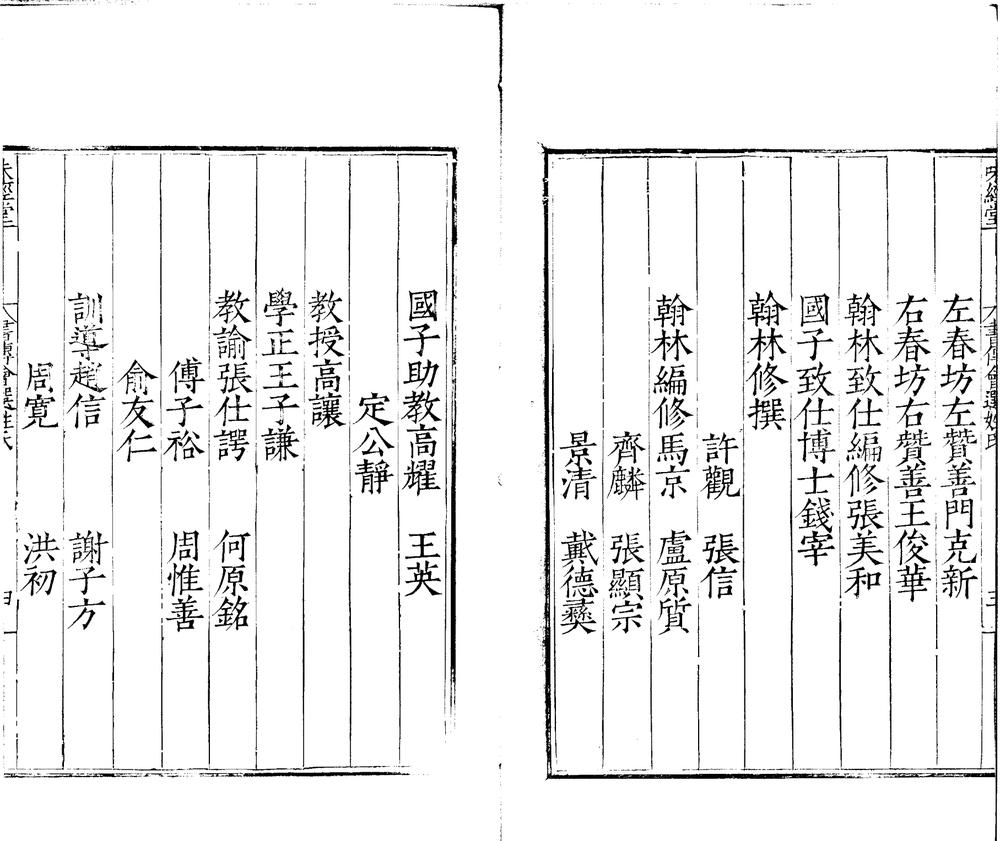 味經堂
書傳會選姓氏
三
左春坊左贊善門克新
右春坊右贊善王俊華
翰林致仕編修張美和
國子致仕博士錢宰
翰林修撰
許觀 張信
翰林編修馬京 盧原質
齊麟 張顯宗
景清 戴德彝
國子助教高耀 王英
定公靜
教授高讓
學正王子謙
教諭張仕諤 何原銘
傅子裕 周惟善
俞友仁
訓導趙信 謝子方
周寬 洪初
味經堂
書傳會選姓氏
四